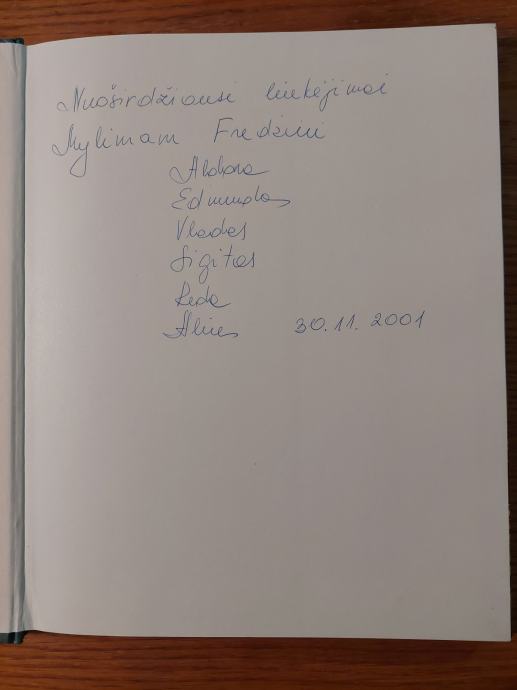 Nuoširdžiausi linkėjimai
Mylimam Fredžiui
Aldona
Edmundas
Vladas
Sigitas
Reda
30.11.2001